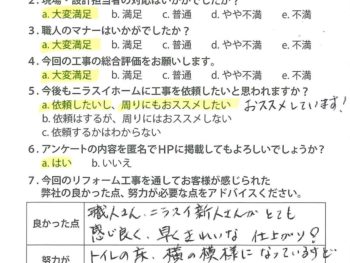 2. 現場・設計担当者の対応はいかがでしたか？
a. 大変満足 b. 満足 c. 普通 d. やや不満 e. 不満
3. 職人のマナーはいかがでしたか？
a. 大変満足 b. 満足 c. 普通 d. やや不満 e. 不満
4. 今回の工事の総合評価をお願いします。
a. 大変満足 b. 満足 c. 普通 d. やや不満 e. 不満
5. 今後もニラスイホームに工事を依頼したいと思われますか？
a. 依頼したいし、周りにもおススメしたい おススメしています！
b. 依頼はするが、周りにはおススメしない
c. 依頼するかはわからない
6. アンケートの内容を匿名でHPに掲載してもよろしいでしょうか？
a. はい b. いいえ
7. 今回のリフォーム工事を通してお客様が感じられた
弊社の良かった点、努力が必要な点をアドバイスください。
良かった点
職人さん、ニラスイ新人さんがとても
感じ良く、早くきれいな仕上がり？
努力が
トイレの床、横の模様になっているけど